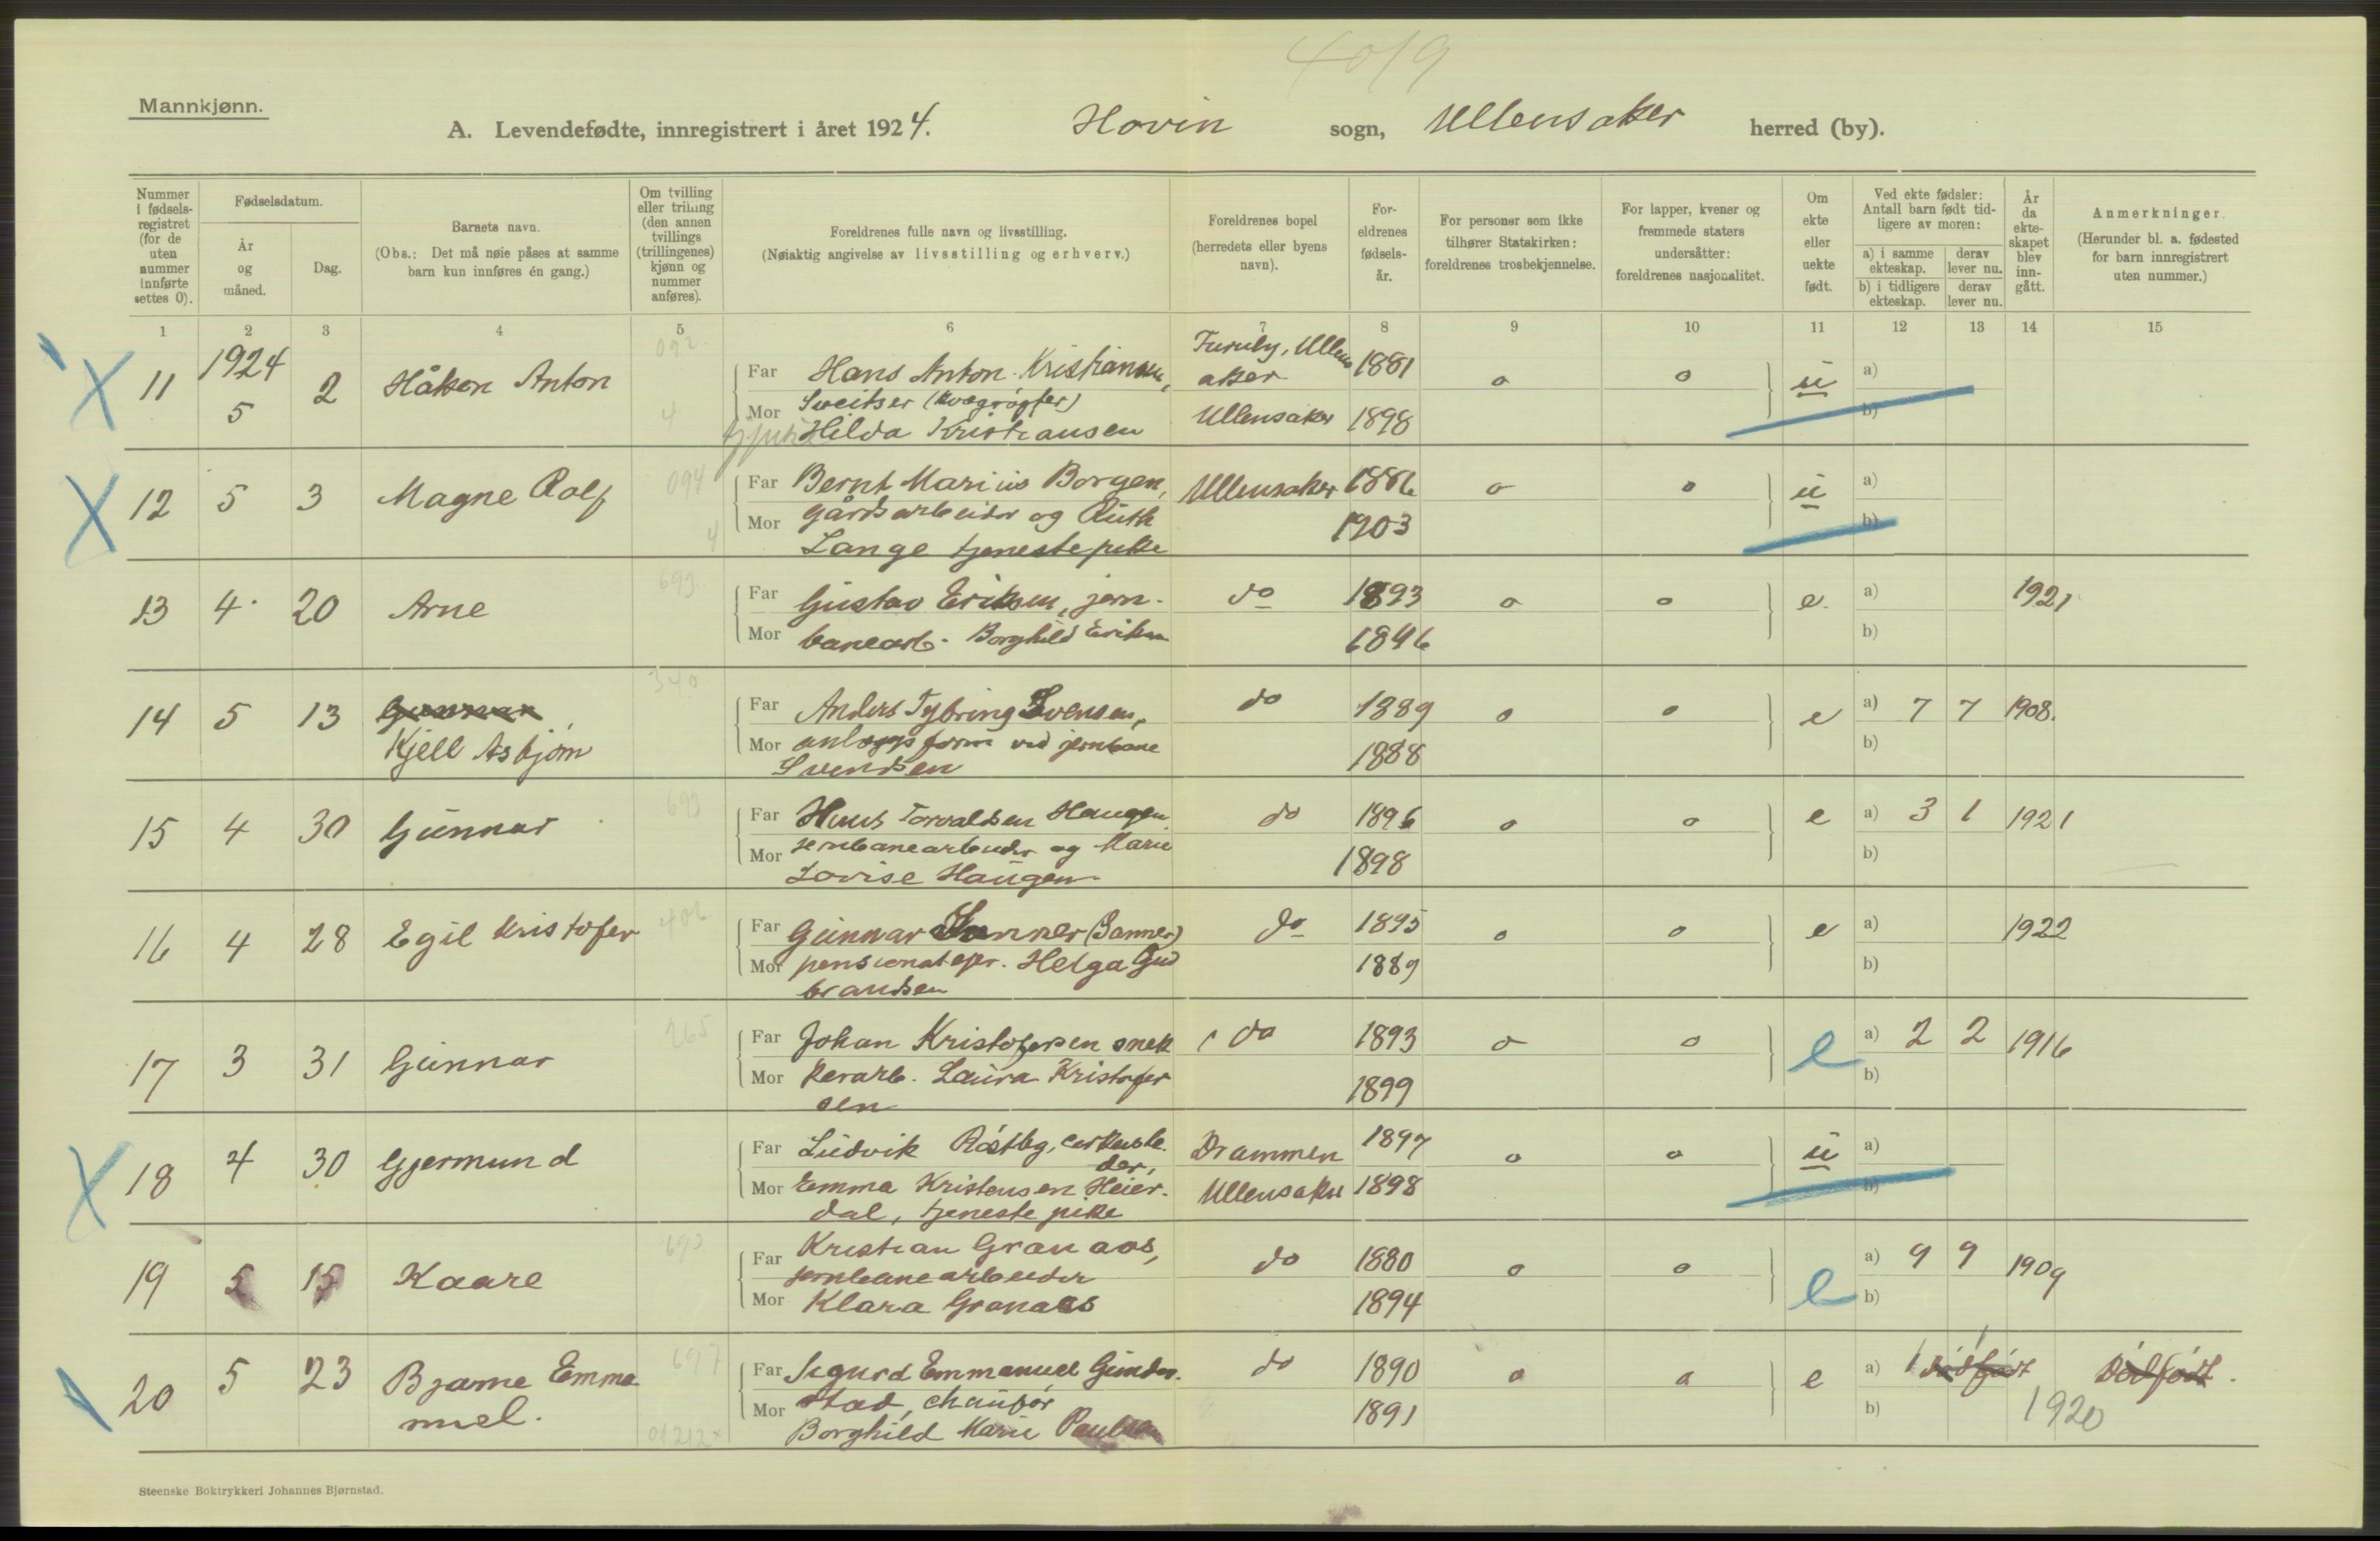 4019
Mannkjønn.
A. Levendefødte, innregistrert i året 1924. Hovin sogn, Ullensaker herred (by).
Nummer i fødsels-registret (for de uten nummer innførte settes 0).
Fødselsdatum.
År og måned.
Dag.
Barnets navn.
(Obs.: Det må nøie påses at samme barn kun innføres én gang.)
Om tvilling eller trilling (den annen tvillings (trillingenes) kjønn og nummer anføres).
Foreldrenes fulle navn og livsstilling.
(Nøiaktig angivelse av livsstilling og erhverv.)
Foreldrenes bopel (herredets eller byens navn).
For-eldrenes fødsels-år.
For personer som ikke tilhører Statskirken: foreldrenes trosbekjennelse.
For lapper, kvener og fremmede staters undersåtter: foreldrenes nasjonalitet.
Om ekte eller uekte født.
Ved ekte fødsler: Antall barn født tid-ligere av moren:
a) i samme ekteskap.
derav lever nu.
b) i tidligere ekteskap.
derav lever nu.
År da ekte-skapet blev inn-gått.
Anmerkninger.
(Herunder bl. a. fødested for barn innregistrert uten nummer.)
1 2 3 4 5 6 7 8 9 10 11 12 13 14 15
092
11 1924 5 2 Håkon Anton Far Hans Anton Kristiansen, Furuly, Ullens 1881 o o ü a)
aker
4 Mor Sveitser (kvægrøgter) Ullensaker 1898 b)
Hilda Kristiansen
12 5 3 Magne Rolf 094 Far Bernt Marius Borgen, Ullensaker 1886 o o ü a)
4 Mor Gårdsarbeider og Ruth 1903 b)
Lange tjenestepike
13 4 20 Arne 693 Far Gustav Eriksen, jern- do 1893 o o e. a) 1921
Mor banearb. Borghild Eriksen 1896 b)
14 5 13 Gunnar 340 Far Anders Tybring Svensen, do 1889 o o e a) 7 7 1908.
Kjell Asbjørn Mor anlægsform ved jernbane 1888 b)
Svendsen
15 4 30 Gunnar 693 Far Hans Torvaldsen Haugen do 1896 o o e a) 3 1 1921
Mor jernbanearbeider og Marie 1898 b)
Lovise Haugen
16 4 28 Egil Kristofer 406 Far Gunnar Sanner (Sanner) do 1895 o o e a) 1922
Mor pensionatejer. Helga Gud 1889 b)
brandsen
17 3 31 Gunnar 265 Far Johan Kristofersen snek do 1893 o o e a) 2 2 1916
Mor kerarb. Laura Kristofer 1899 b)
sen
18 4 30 Gjermund Far Ludvik Råstbg, Drammen 1897 o o ü a)
Mor Emma Kristensen Heier- Ullensaker 1898 b)
dal, tjenestepike
19 5 15 Kaare 693 Far Kristian Granaas, do 1880 o o e a) 9 9 1909
jernbanearbeider
Mor Klara Granaas 1894 b)
20 5 23 Bjarne Emma 697 Far Sigurd Emmanuel Gunder- do 1890 o o e a) 1 dødfødt Dødfødt.
nuel. Mor stad, chaufør 1891 b) 1920
01212x Borghild Marie Paulsen
Steenske Boktrykkeri Johannes Bjørnstad.